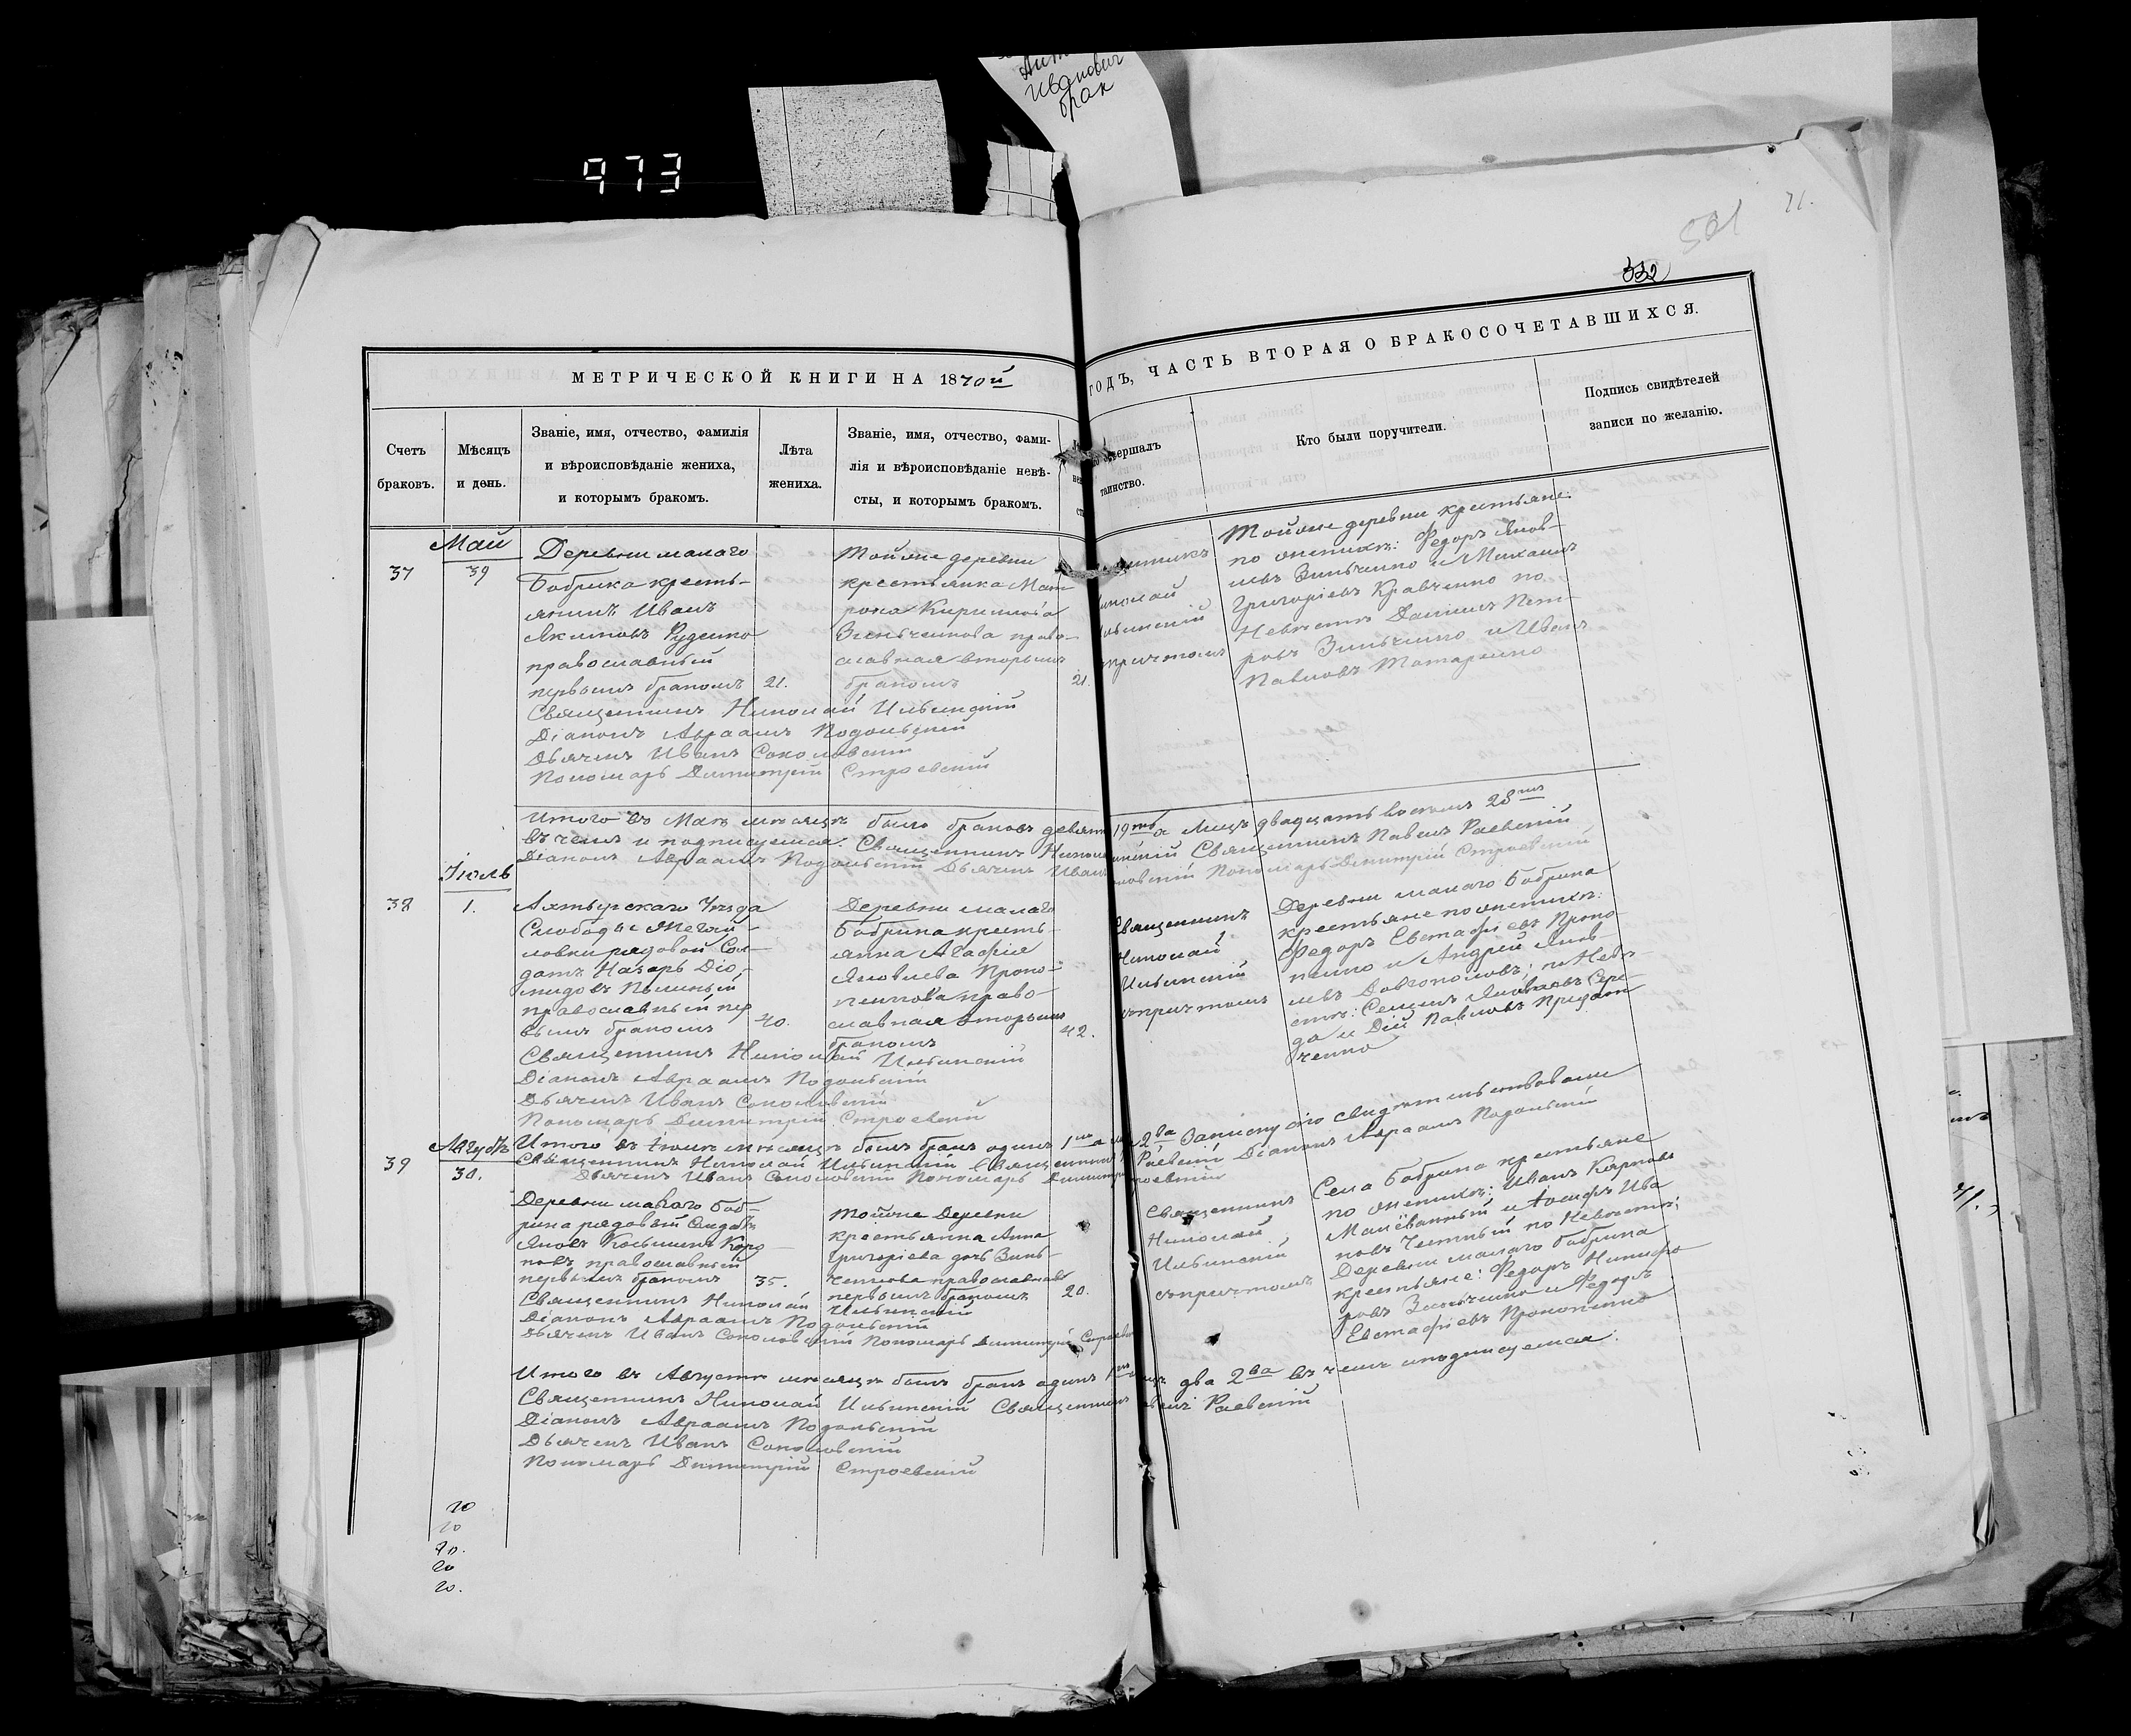 Иванович
брак
973
501
71.
332
МЕТРИЧЕСКОЙ КНИГИ НА 1870й
ГОДЪ, ЧАСТЬ ВТОРАЯ О БРАКОСОЧЕТАВШИХСЯ.
Счетъ
браковъ.
Мѣсяцъ
и день.
Званіе, имя, отчество, фамилія
и вѣроисповѣданіе жениха,
и которымъ бракомъ.
Лѣта
жениха.
Званіе, имя, отчество, фами-
лія и вѣроисповѣданіе невѣ-
сты, и которымъ бракомъ.
совершалъ
таинство.
Кто были поручители.
Подпись свидѣтелей
записи по желанію.
Май
37
39
Деревни малаго
Бобрика кресть-
янинъ Иванъ
Акимовъ Руденко
православный
первымъ бракомъ
21.
Тойже деревни
крестьянка Мат
рона Кирилова
Зинченкова право-
славная вторымъ
бракомъ
21.
Николай
Ильинскій
съпричтомъ
Тойже деревни крестьяне
по женихѣ: Федоръ Яков-
левъ Зинченко и Михаилъ
Григоріевъ Кравченко по
Невѣстѣ Даніилъ Пет-
ровъ Зинченко и Иванъ
Павловъ Татаренко
Священникъ Николай Ильинскій
Діаконъ Авраамъ Подольскій
Дьячекъ Иванъ Соколовскій
Пономарь Димитрій Строевскій
Итого въ Маѣ мѣсяцѣ было браковъ девят 19ть а Лицъ двадцать восемь 28мь
въ чемъ и подписуемся. Священникъ Никол инскій Священникъ Павелъ Раевскій
Діаконъ Авраамъ Подольскій Дьячекъ Иванъ ловскій Пономарь Димитрій Строевскій
Іюль
38
1.
Ахтырскаго Уѣзда
Слободы
ловки рядовой Сол-
датъ Назаръ Діо-
мидовъ
православный пер
вымъ бракомъ
40.
Деревни малаго
Бобрика кресть-
янка Агафія
Яковлева Проко-
пенкова право-
славная вторымъ
бракомъ
42.
Священникъ
Николай
Ильинскій
съпричтомъ
Деревни малаго Бобрика
крестьяне поженихѣ:
Федоръ Евстафіевъ Проко-
пенко и Андрей Яков-
левъ Довгополовъ; по Невѣ-
стѣ: Семенъ Яковлевъ Сере-
да и Дій Павловъ Придат
ченко
Священникъ Николай Ильинскій
Діаконъ Авраамъ Подольскій
Дьячекъ Иванъ Соколовскій
Пономарь Димитрій Строевскій
Итого въ Іюлѣ мѣсяцѣ былъ бракъ одинъ 1нъ а 2ва Записку сію свидѣтельствовали
Священникъ Николай Ильинскій Священникъ Раевскій Діаконъ Авраамъ Подольскій
Дьячекъ Иванъ Соколовскій Пономарь Димитрі роевскій
Августъ
39
30.
Деревни малаго Боб-
рика рядовой Солдатъ
Яковъ Косьминъ Кар
повъ православный
первымъ бракомъ
35.
Тойже Деревни
крестьянка Анна
Григоріева дочь Зинь-
ченкова православная
первымъ бракомъ
20.
Священникъ
Николай
Ильинскій
съпричтомъ
Села Бобрика крестьяне
по женихѣ: Иванъ Карповъ
Малёванный и Іосифъ Ива
новъ Честный по Невѣстѣ;
Деревни малаго Бобрика
крестьяне: Федоръ Никифо
ровъ Зинченко и Федоръ
Евстафіевъ Прокопенко
Священникъ Николай Ильинскій
Діаконъ Авраамъ Подольскій
Дьячекъ Иванъ Соколовскій Пономарь Димитрій Строевск
Итого въ Августѣ мѣсяцѣ былъ бракъ одинъ 1нъ ицъ два 2ва въ чемъ иподписуемся.
Священникъ Николай Ильинскій Священникъ велъ Раевскій
Діаконъ Авраамъ Подольскій
Дьячекъ Иванъ Соколовскій
Пономарь Димитрій Строевскій
20
20
20.
20
20.